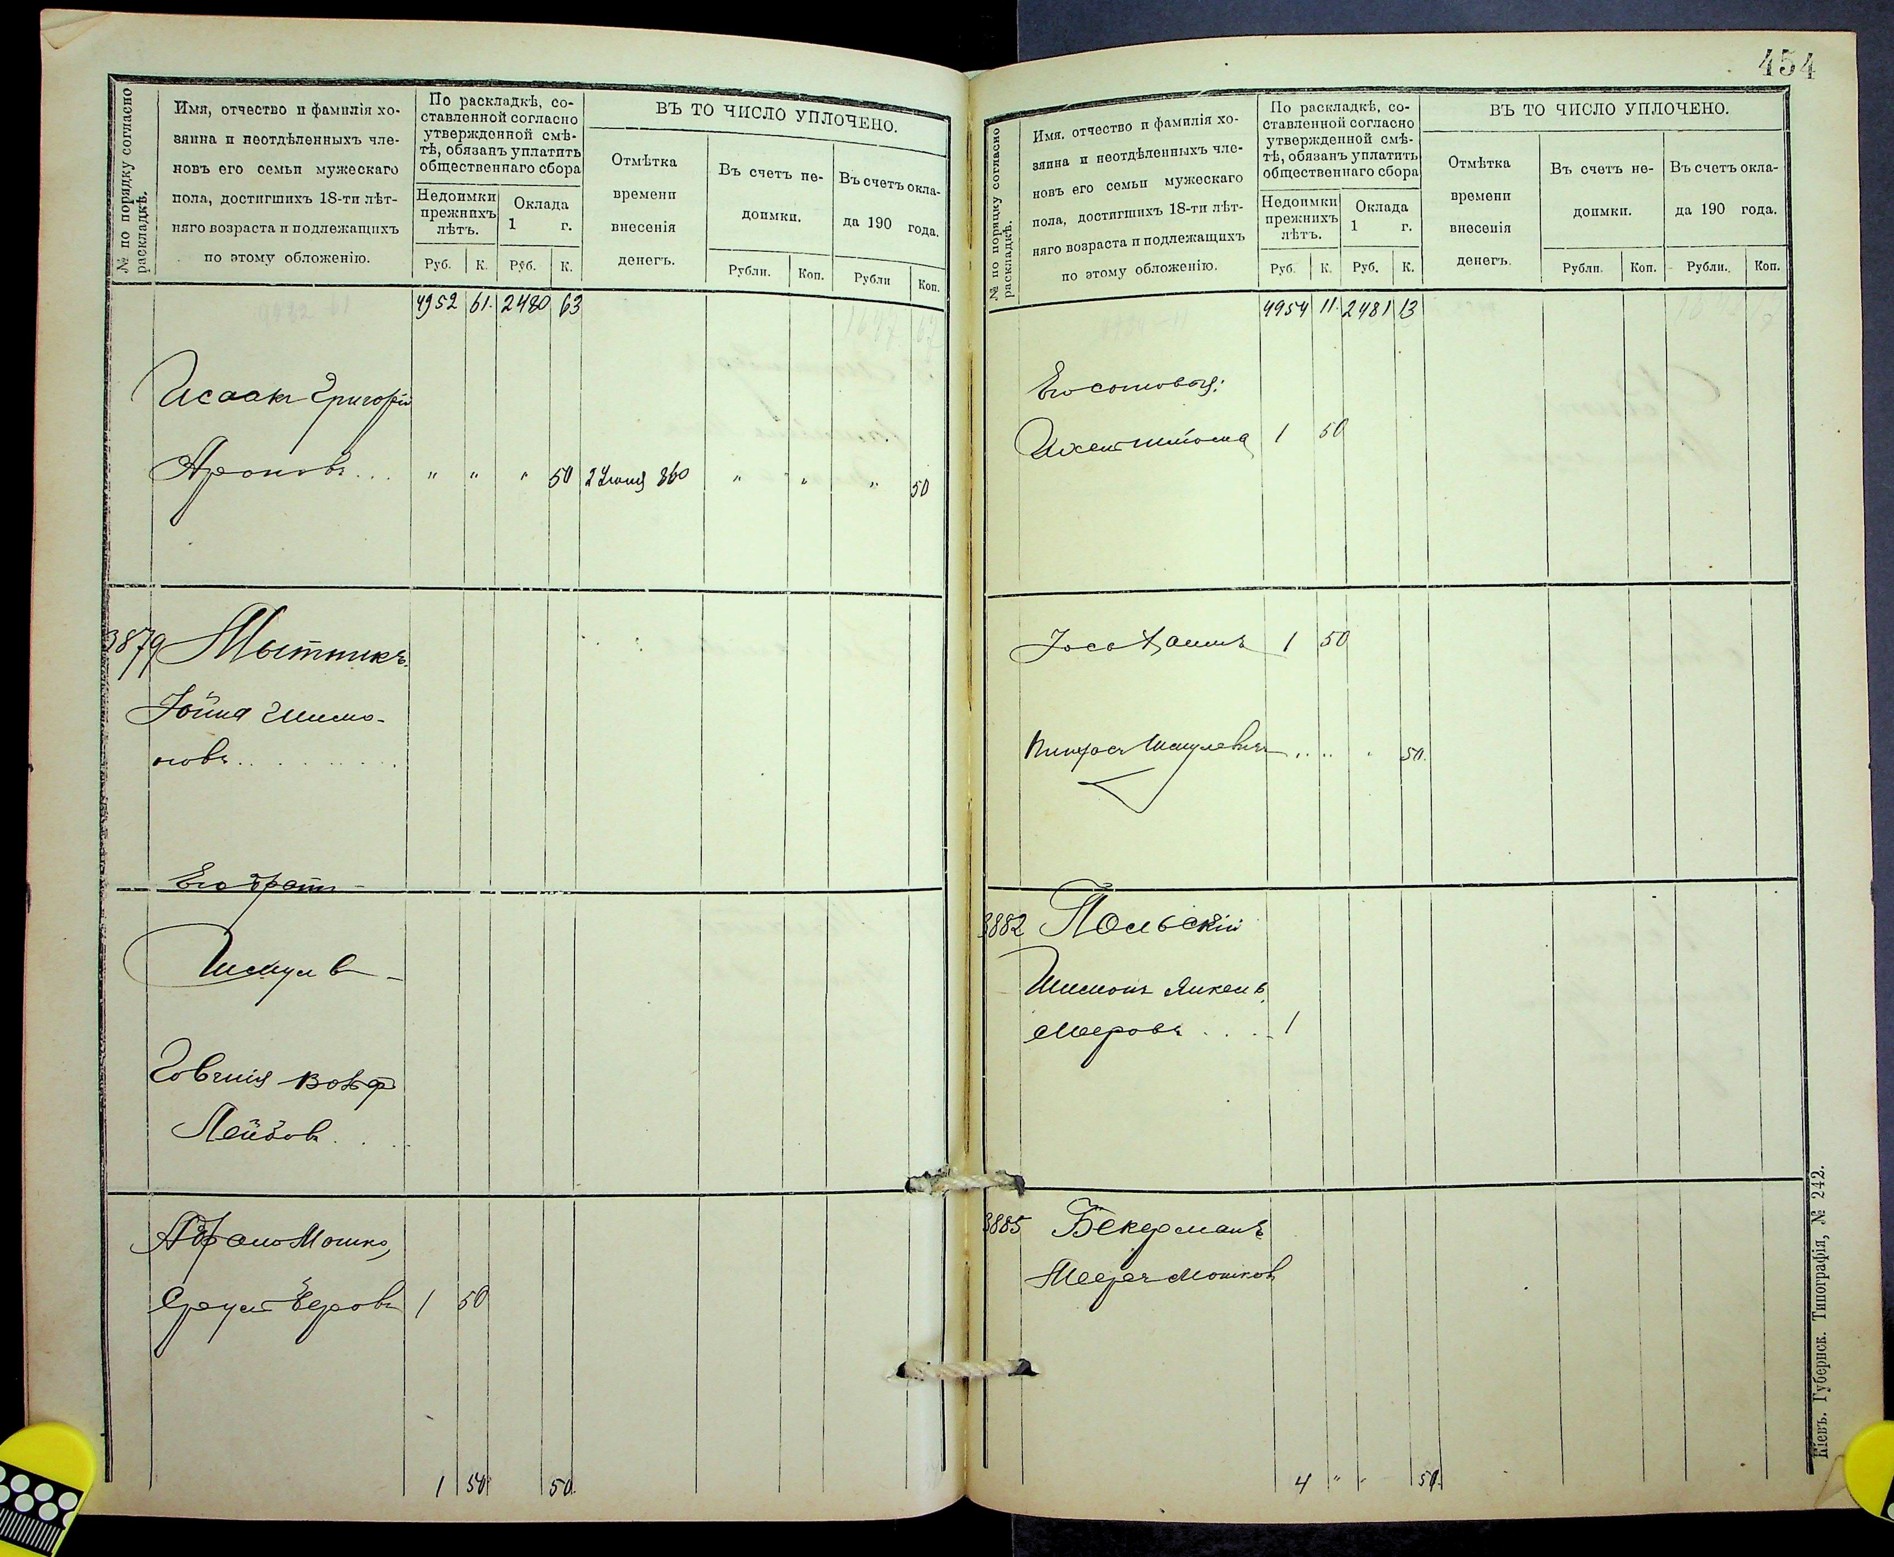 № по порядку согласно раскладкѣ.
Имя, отчество и фамилія хо-
зяина и неотдѣленныхъ чле-
новъ его семьи мужескаго
пола, достигшихъ 18-ти лѣт-
няго возраста и подлежащихъ
по этому обложенію.
По раскладкѣ, со-
ставленной согласно
утвержденной смѣ-
тѣ, обязанъ уплатить
общественнаго сбора
Недоимки
прежнихъ
лѣтъ.
Оклада
1 г.
Руб. К. Руб. К.
ВЪ ТО ЧИСЛО УПЛОЧЕНО.
Отмѣтка
времени
внесенія
денегъ.
Въ счетъ не-
доимки.
Въ счетъ окла-
да 190 года.
Рубли. Коп. Рубли Коп.
4952 61. 2480 63
Исаакъ Григорій
Ароновъ... " " " 50 2 Іюня 860 " " " 50
3879 Мытникъ
Іойна Шимо-
новъ
Его братъ
Шмуль
Вольф
Лейбовъ
Абрамъ Мошко,
Сруль Беровъ 1 50
1 50 50.
454
№ по порядку согласно раскладкѣ.
Имя, отчество и фамилія хо-
зяина и неотдѣленныхъ чле-
новъ его семьи мужескаго
пола, достигшихъ 18-ти лѣт-
няго возраста и подлежащихъ
по этому обложенію.
По раскладкѣ, со-
ставленной согласно
утвержденной смѣ-
тѣ, обязанъ уплатить
общественнаго сбора
Недоимки
прежнихъ
лѣтъ.
Оклада
1 г.
Руб. К. Руб. К.
ВЪ ТО ЧИСЛО УПЛОЧЕНО.
Отмѣтка
времени
внесенія
денегъ.
Въ счетъ не-
доимки.
Въ счетъ окла-
да 190 года.
Рубли. Коп. Рубли. Коп.
4954 11. 2481 13
Его сыновья:
1 50
1 50
Пинхасъ Шмулевичъ 50.
3882 Польскій
Шимонъ Янкель
Мееровъ . . . . 1
3885 Бекерманъ
Мееръ Мошковъ
4 " " 50.
Кіевъ. Губернск. Типографія, № 242.